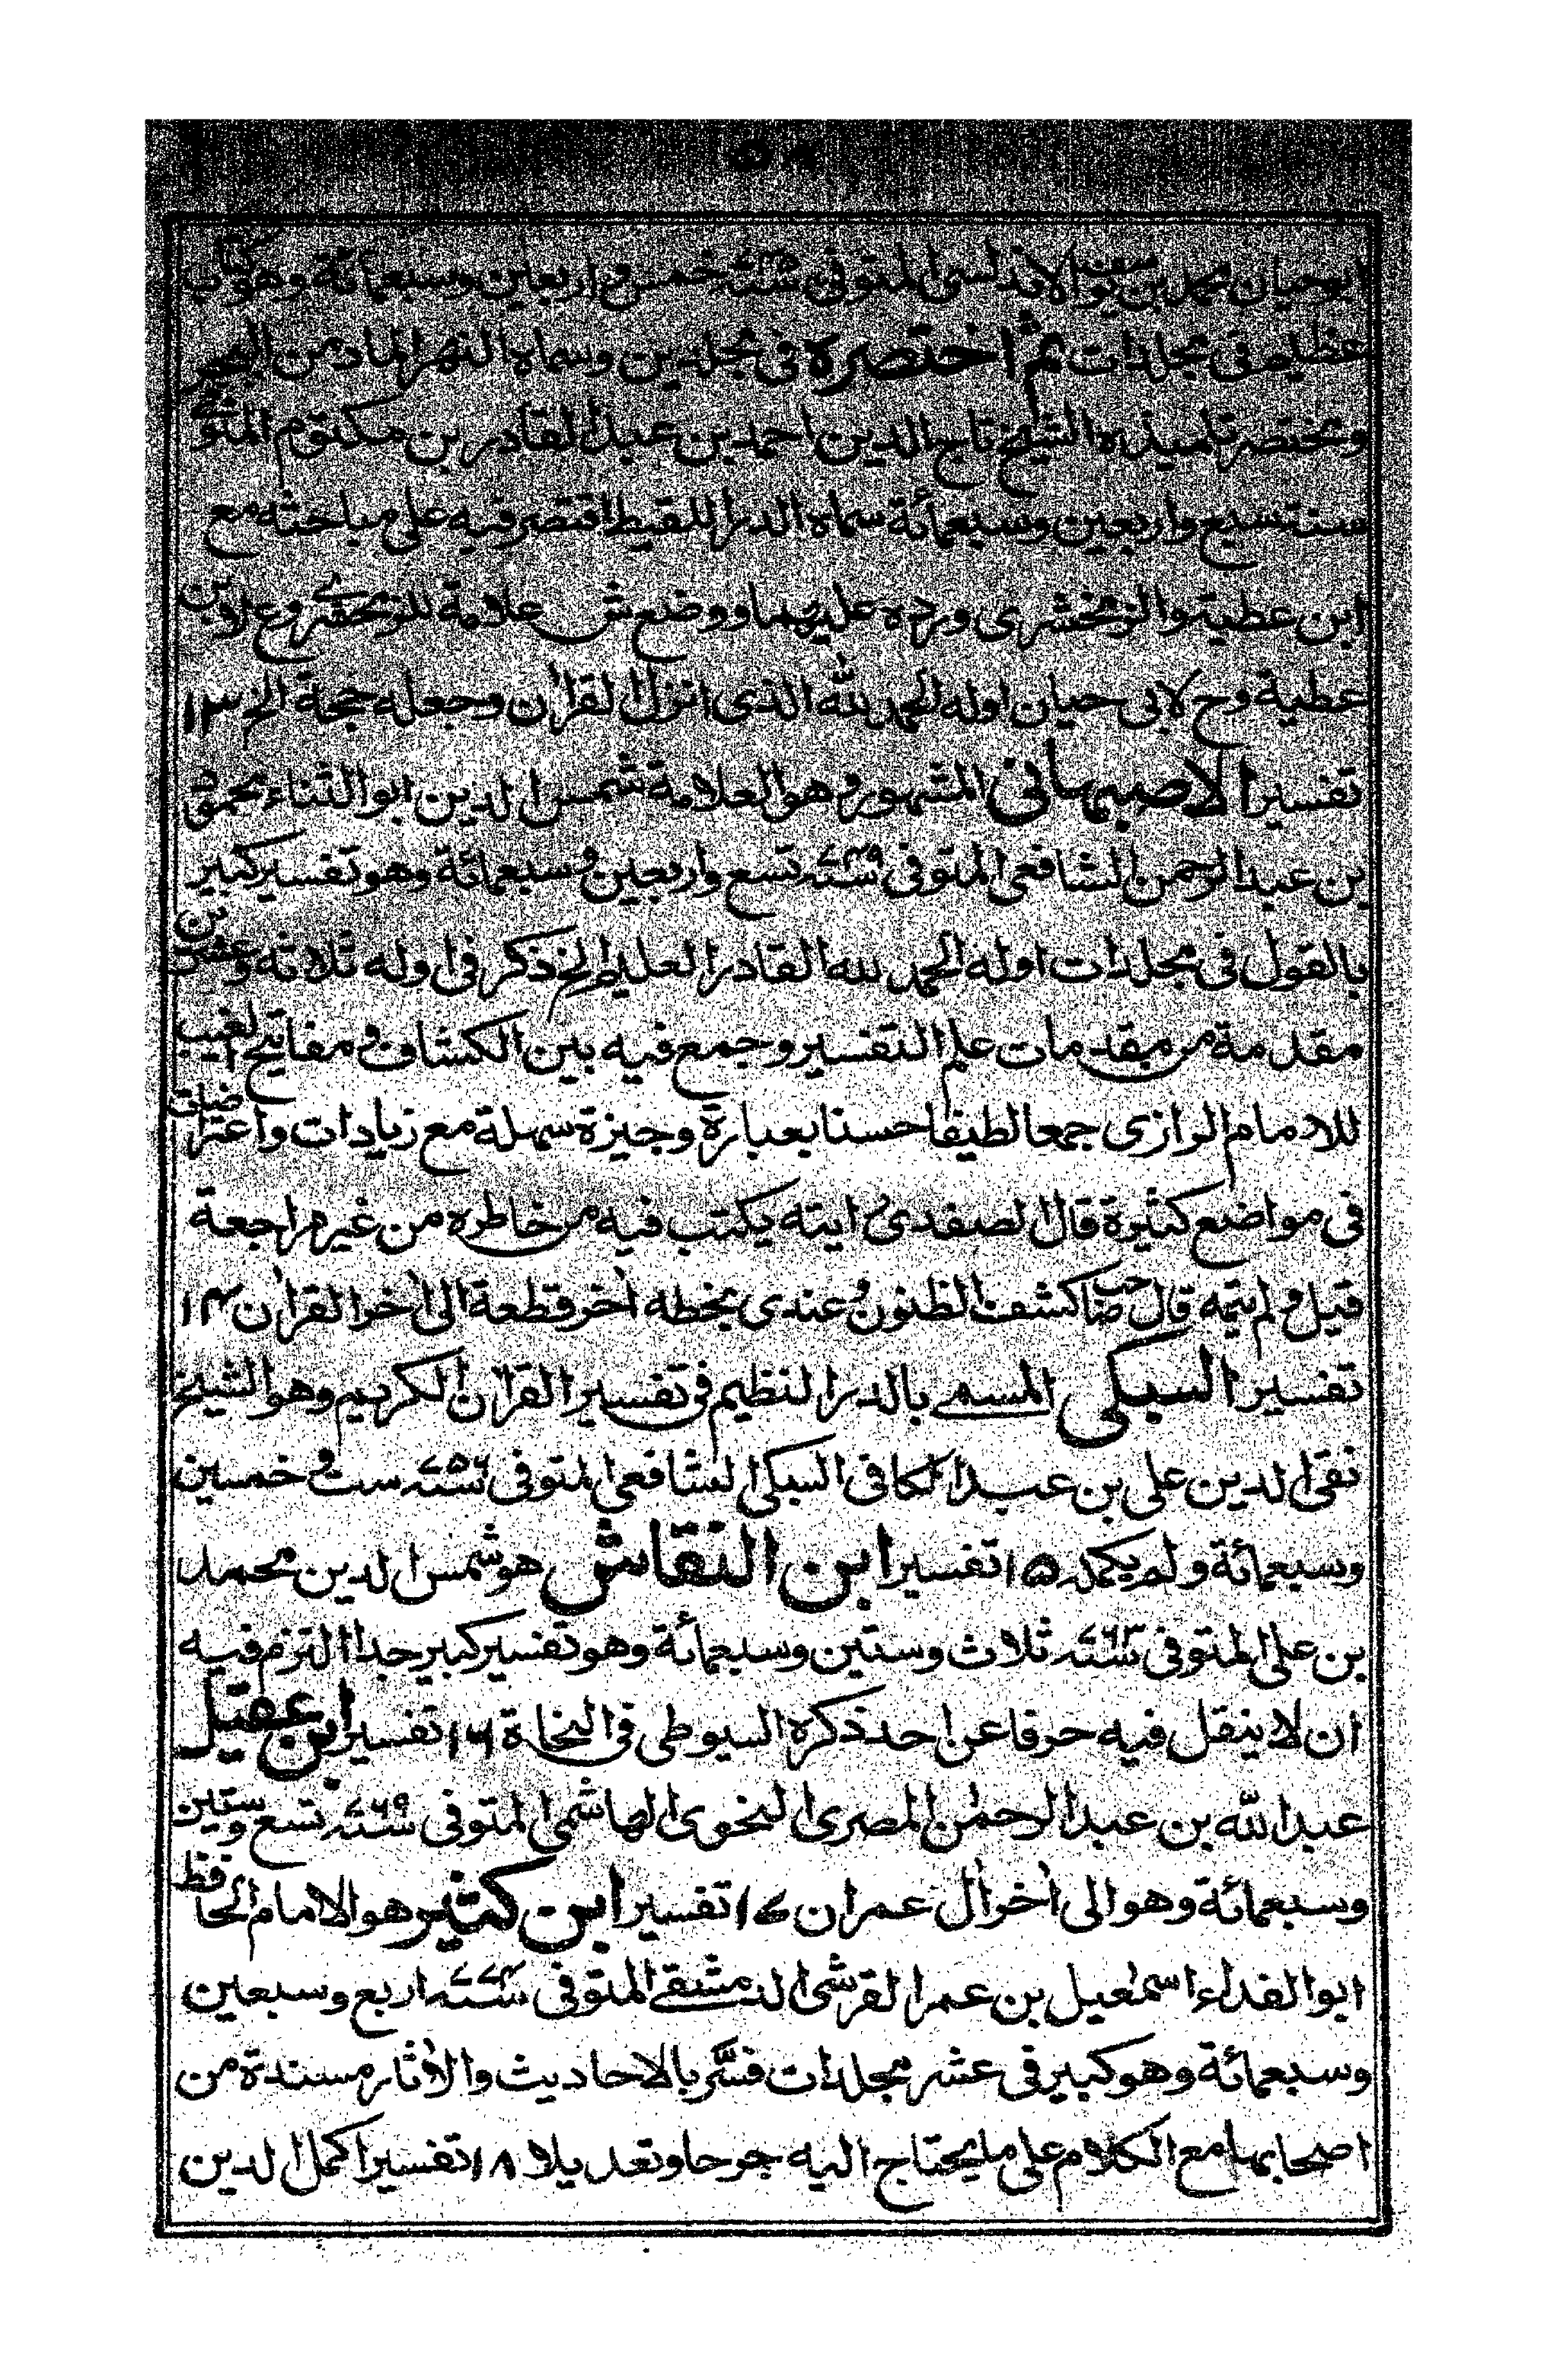 ابو حيان محمد بن يوسف الاندلسي المتوفى سنة ٧٤٥ خمس و اربعين وسبعمائة وهو كتاب
عظيم في مجلدات ثم اختصره في مجلدين وسماه النهر الماد من البحر
ومختصر تلميذه الشيخ تاج الدين احمد بن عبد القادر بن مكتوم المتوفى
سنة تسع واربعين وسبعمائة سماه الدر اللقيط اقتصر فيه على مباحثه مع
ابن عطية والزمخشري ورده عليهما ووضع ش علامة للزمخشرے وع لابن
عطية وح لابي حيان اوله الحمد لله الذي انزل القرآن وجعله حجة الخ ١٣
تفسير الاصبهاني المشهور وهو العلامة شمس الدين ابو الثناء محمود
بن عبد الرحمن الشافعي المتوفى سنة ٧٤٩ تسع واربعين و سبعمائة وهو تفسير كبير
بالقول في مجلدات اوله الحمد لله القادر العليم الخ ذكر في اوله ثلاثه وعشرين
مقدمة من مقدمات علم التفسير وجمع فيه بين الكشاف و مفاتيح الغيب
للامام الرازي جمعا لطيفا حسنا بعبارة وجيزة سهلة مع زيادات واعتراضات
في مواضع كثيرة قال الصفدي رايته يكتب فيه من خاطره من غير مراجعة
قيل و لم يتمه قال صاحب كشف الظنون و عندي بخطه آخر قطعة الى آخر القرآن ١٤
تفسير السبكي المسمے بالدر النظيم في تفسير القرآن الكريم وهو الشيخ
تقي الدين علي بن عبد الكافي السبكي الشافعي المتوفى سنة ٧٥٦ ست و خمسين
وسبعمائة ولم يكمله ١٥ تفسير ابن النقاش هو شمس الدين محمد
بن علي المتوفى سنة ٧٦٣ ثلاث وستين وسبعمائة وهو تفسير كبير جدا التزم فيه
ان لا ينقل فيه حرفا عن احد ذكره السيوطي في النحاة ١٦ تفسير ابن عقيل
عبد الله بن عبد الرحمٰن المصري النحوي الهاشمي المتوفى سنة ٧٦٩ تسع وستين
وسبعمائة وهو الى آخر آل عمران ١٧ تفسير ابن كثير هو الامام الحافظ
ابو الفداء اسمٰعيل بن عمر القرشي الدمشقے المتوفى سنة ٧٧٤ اربع وسبعين
وسبعمائة وهو كبير في عشر مجلدات فسَّر بالاحاديث والآثار مسندة من
اصحابها مع الكلام على ما يحتاج اليه جرحا وتعديلا ١٨ تفسير اكمل الدين